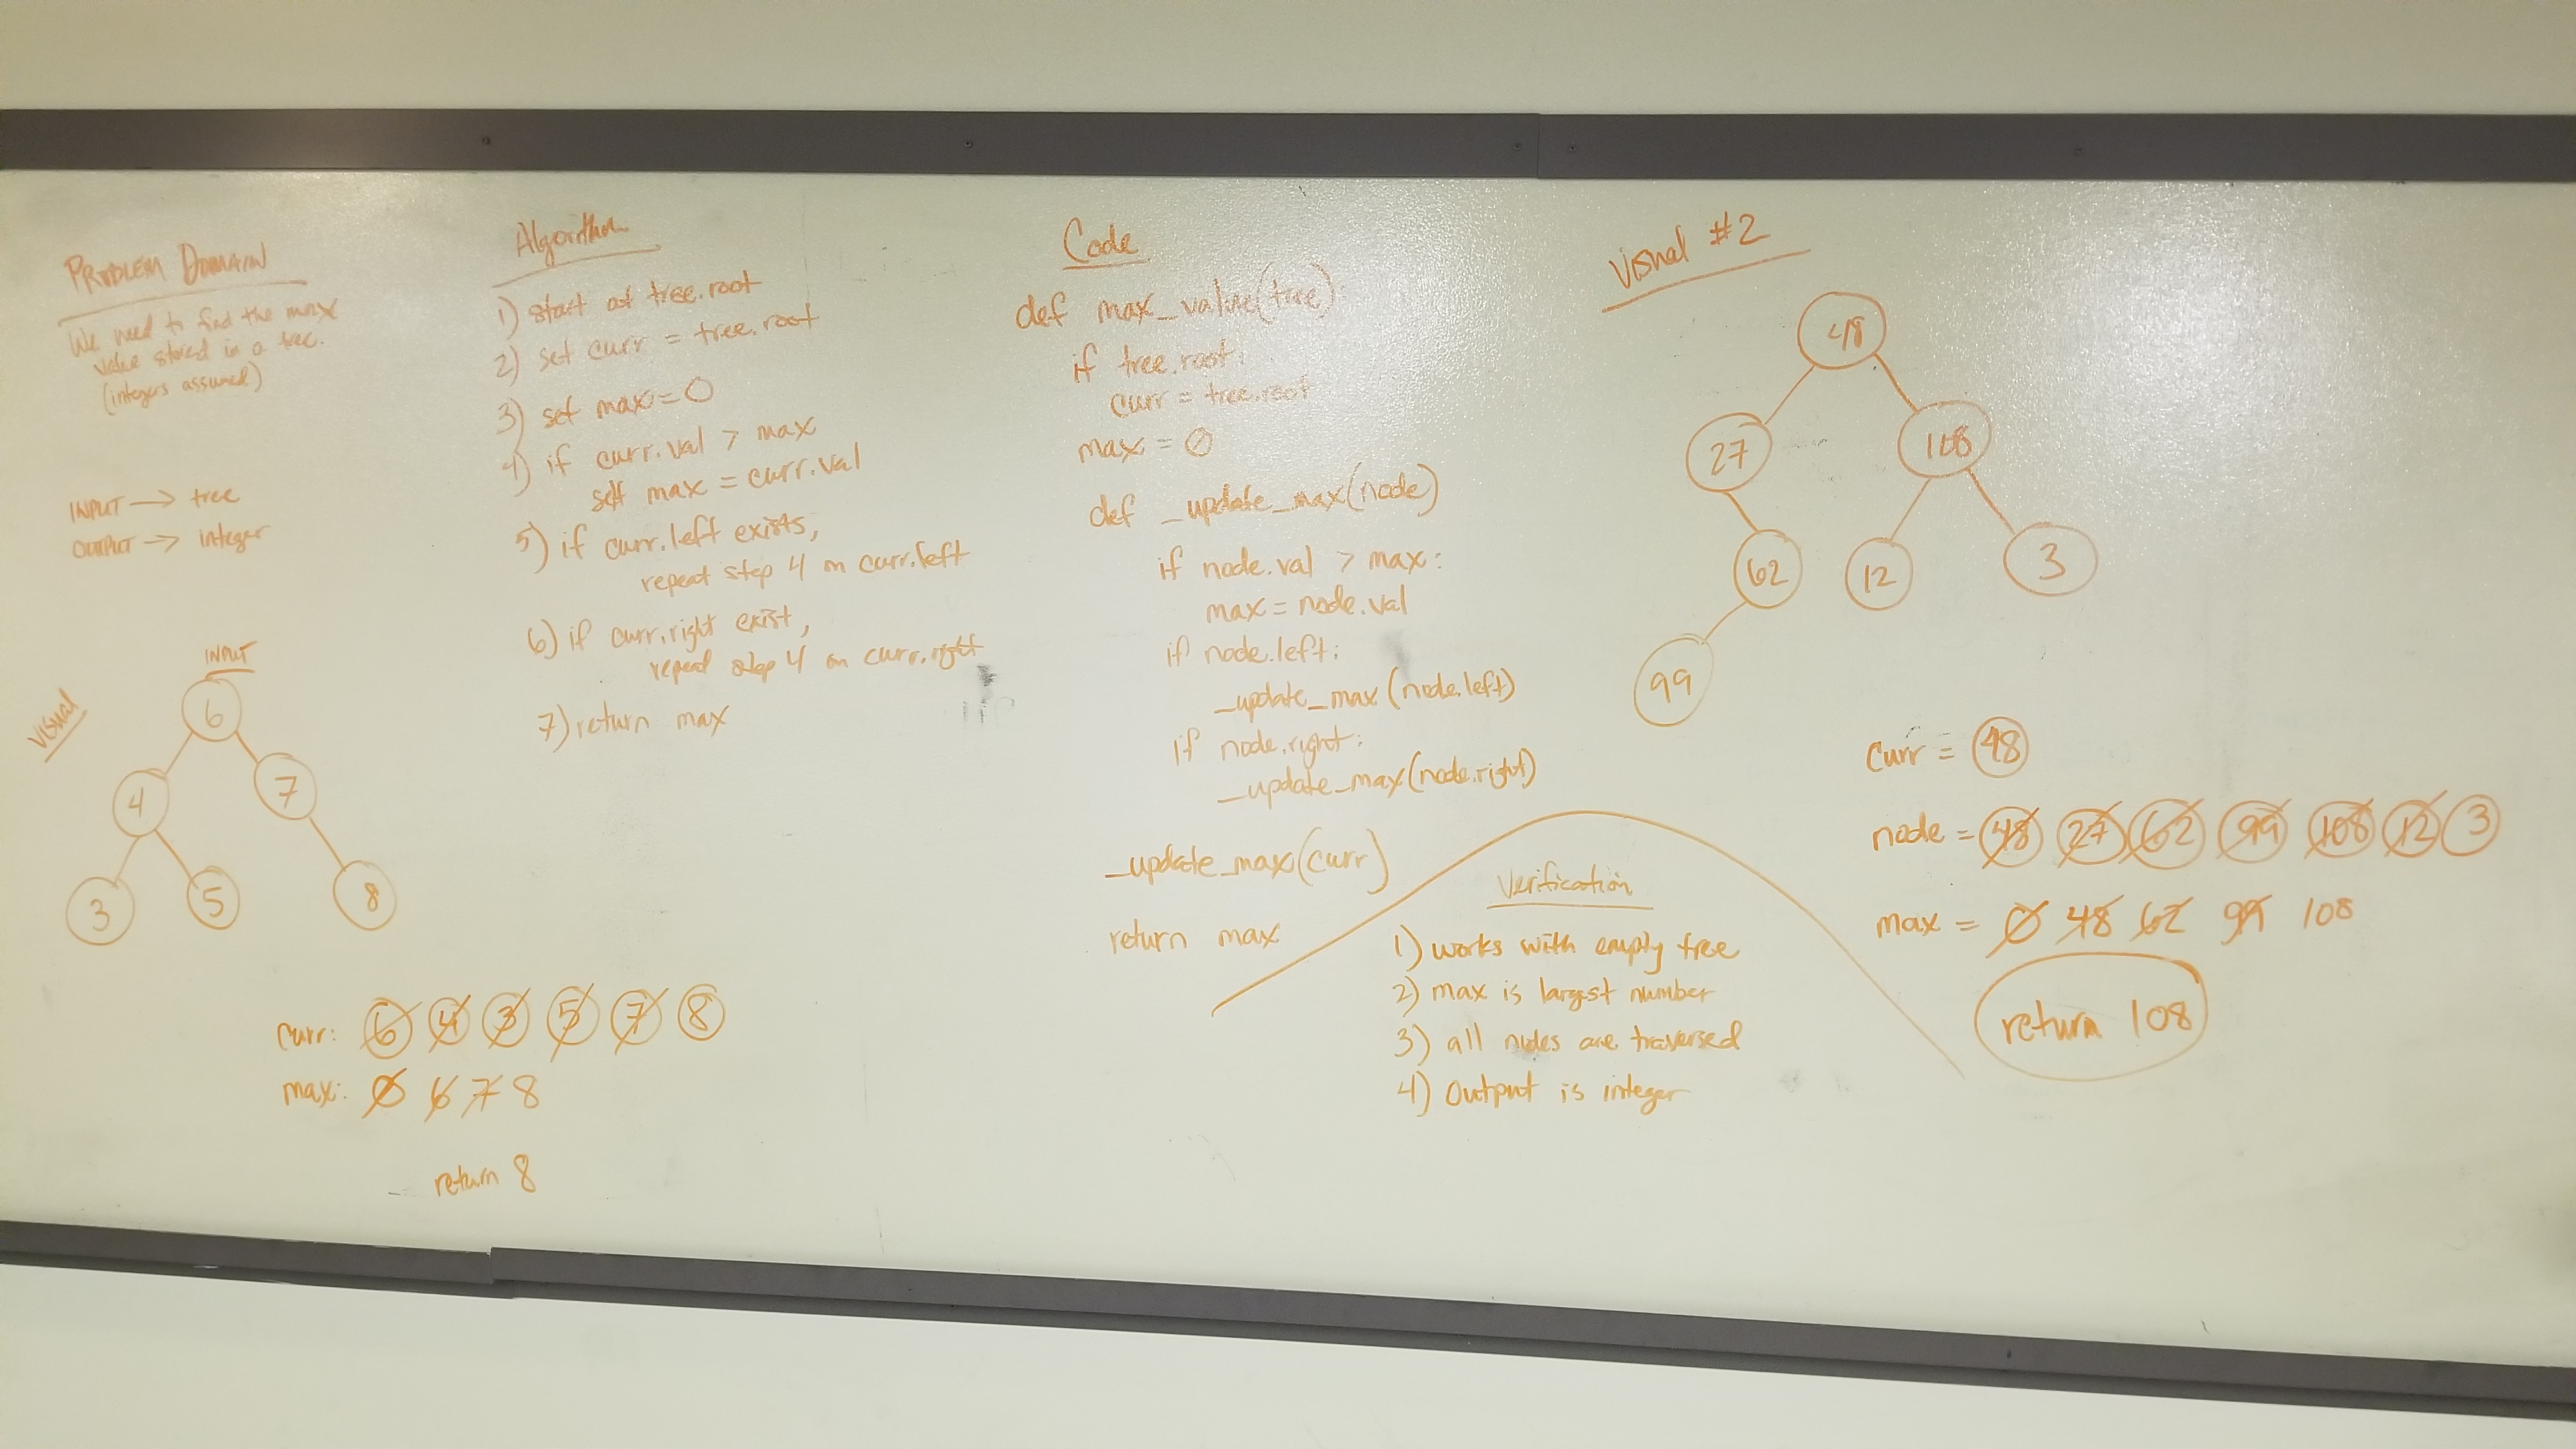 PROBLEM DOMAIN
We need to find the max
value stored in a tree.
(integers assumed)
INPUT → tree
OUTPUT → integer
Visual
INPUT
6
4
7
3
5
8
curr: 6 4 3 5 7 8
max: 0 6 7 8
return 8
Algorithm
1) start at tree.root
2) set curr = tree.root
3) set max = 0
4) if curr.val > max
set max = curr.val
5) if curr.left exists,
repeat step 4 on curr.left
6) if curr.right exist,
repeat step 4 on curr.right
7) return max
Code
def max_value(tree):
if tree.root:
curr = tree.root
max = 0
def _update_max(node)
if node.val > max:
max = node.val
if node.left:
_update_max(node.left)
if node.right:
_update_max(node.right)
_update_max(curr)
return max
Verification
1) works with empty tree
2) max is largest number
3) all nodes are traversed
4) Output is integer
Visual #2
48
27
108
62
12
3
99
Curr = 48
node = 48 27 62 99 108 12 3
max = 0 48 62 99 108
return 108